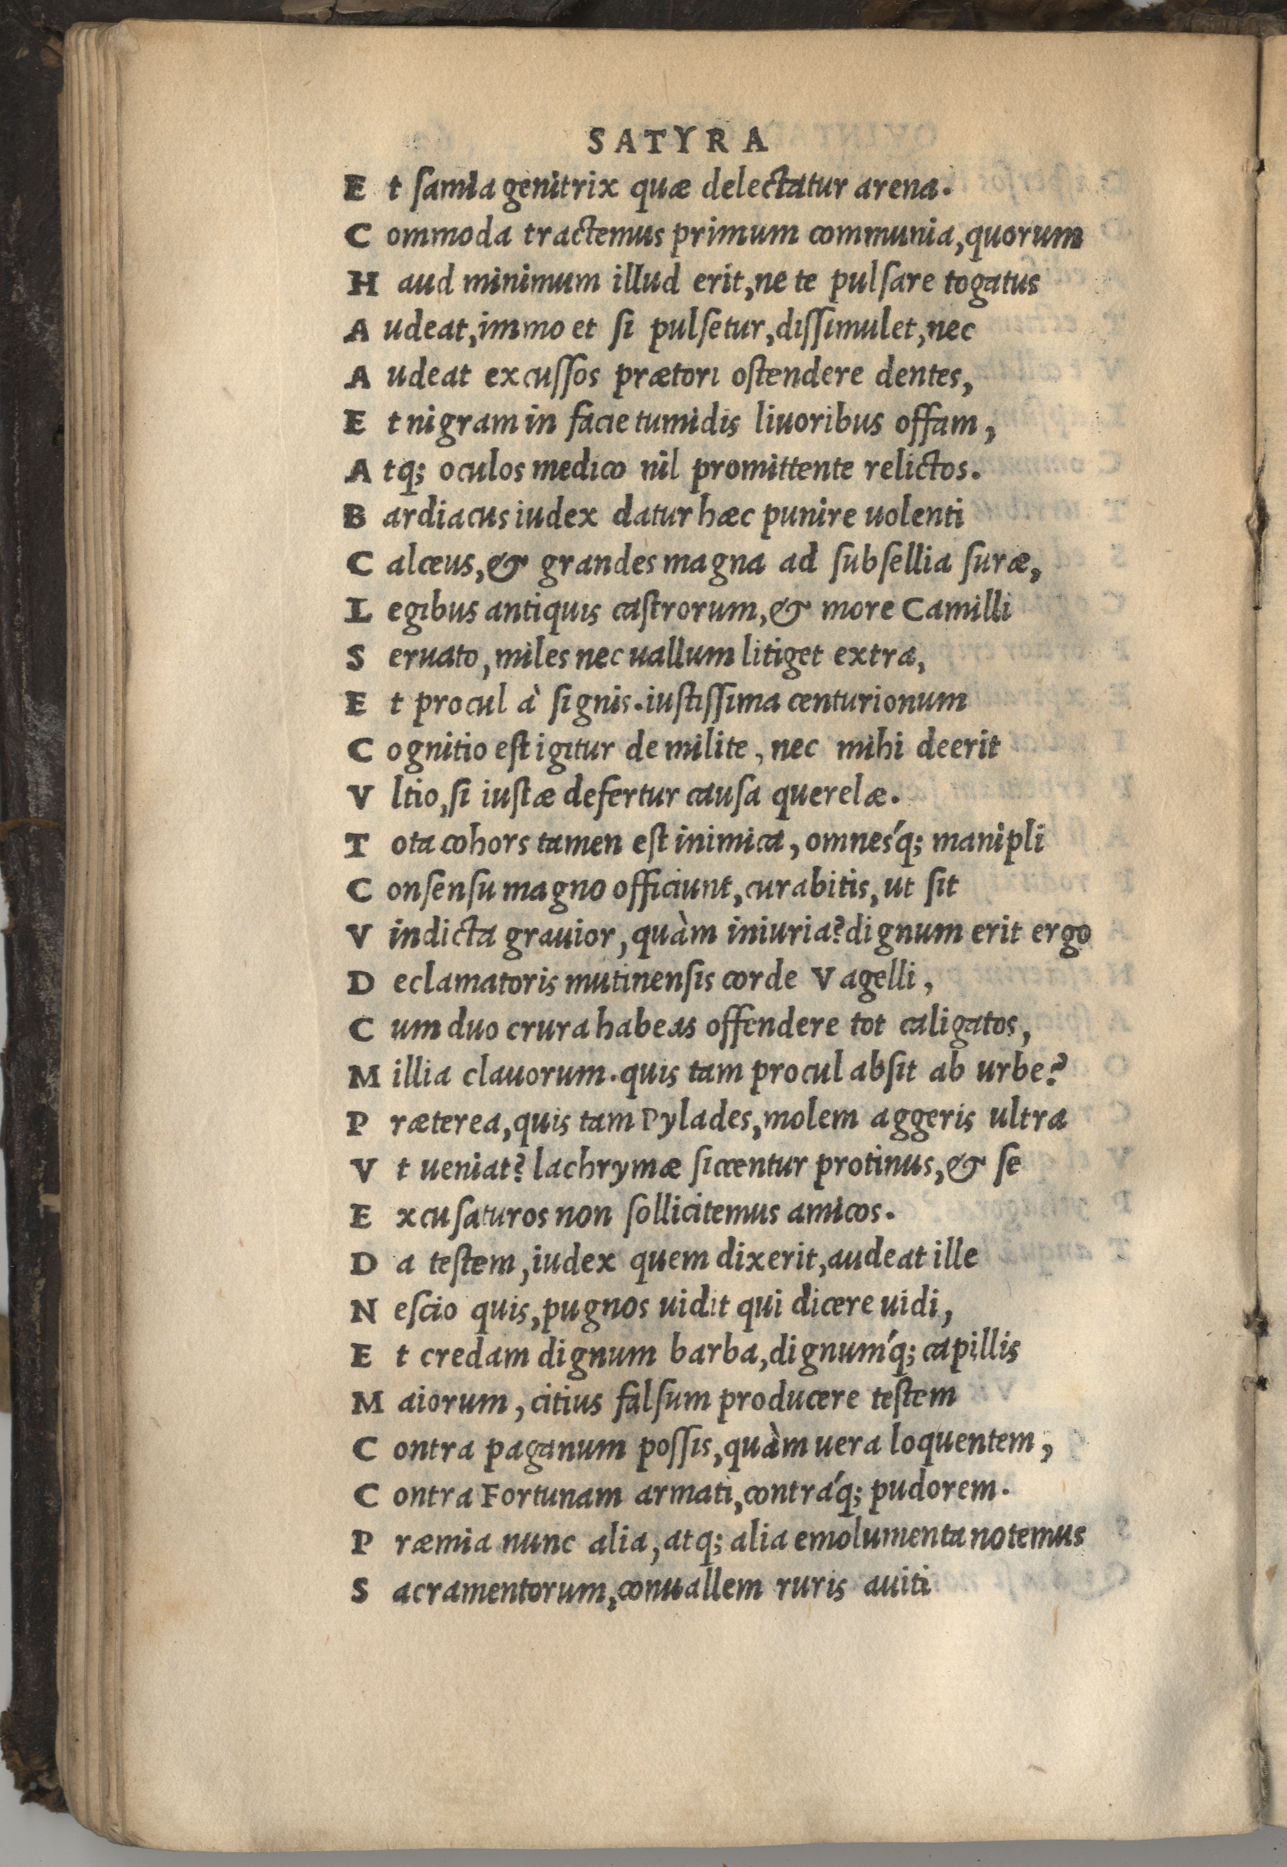 SATYRA
Et samia genitrix quæ delectatur arena.
Commoda tractemus primum communia, quorum
Haud minimum illud erit, ne te pulsare togatus
Audeat, immo et si pulsetur, dissimulet, nec
Audeat excussos prætori ostendere dentes,
Et nigram in facie tumidis liuoribus offam,
Atq; oculos medico nil promittente relictos.
Bardiacus iudex datur hæc punire uolenti
Calceus, & grandes magna ad subsellia suræ,
Legibus antiquis castrorum, & more Camilli
Seruato, miles nec uallum litiget extra,
Et procul à signis. iustissima centurionum
Cognitio est igitur de milite, nec mihi deerit
Vltio, si iustæ defertur causa querelæ.
Tota cohors tamen est inimica, omnesq́; manipli
Consensu magno officiunt, curabitis, ut sit
Vindicta grauior, quàm iniuria? dignum erit ergo
Declamatoris mutinensis corde Vagelli,
Cum duo crura habeas offendere tot caligatos,
Millia clauorum. quis tam procul absit ab urbe?
Præterea, quis tam Pylades, molem aggeris ultra
Vt ueniat? lachrymæ siccentur protinus, & se
Excusaturos non sollicitemus amicos.
Da testem, iudex quem dixerit, audeat ille
Nescio quis, pugnos uidit qui dicere uidi,
Et credam dignum barba, dignumq́; capillis
Maiorum, citius falsum producere testem
Contra paganum possis, quàm uera loquentem,
Contra Fortunam armati, contráq; pudorem.
Præmia nunc alia, atq; alia emolumenta notemus
Sacramentorum, conuallem ruris auiti